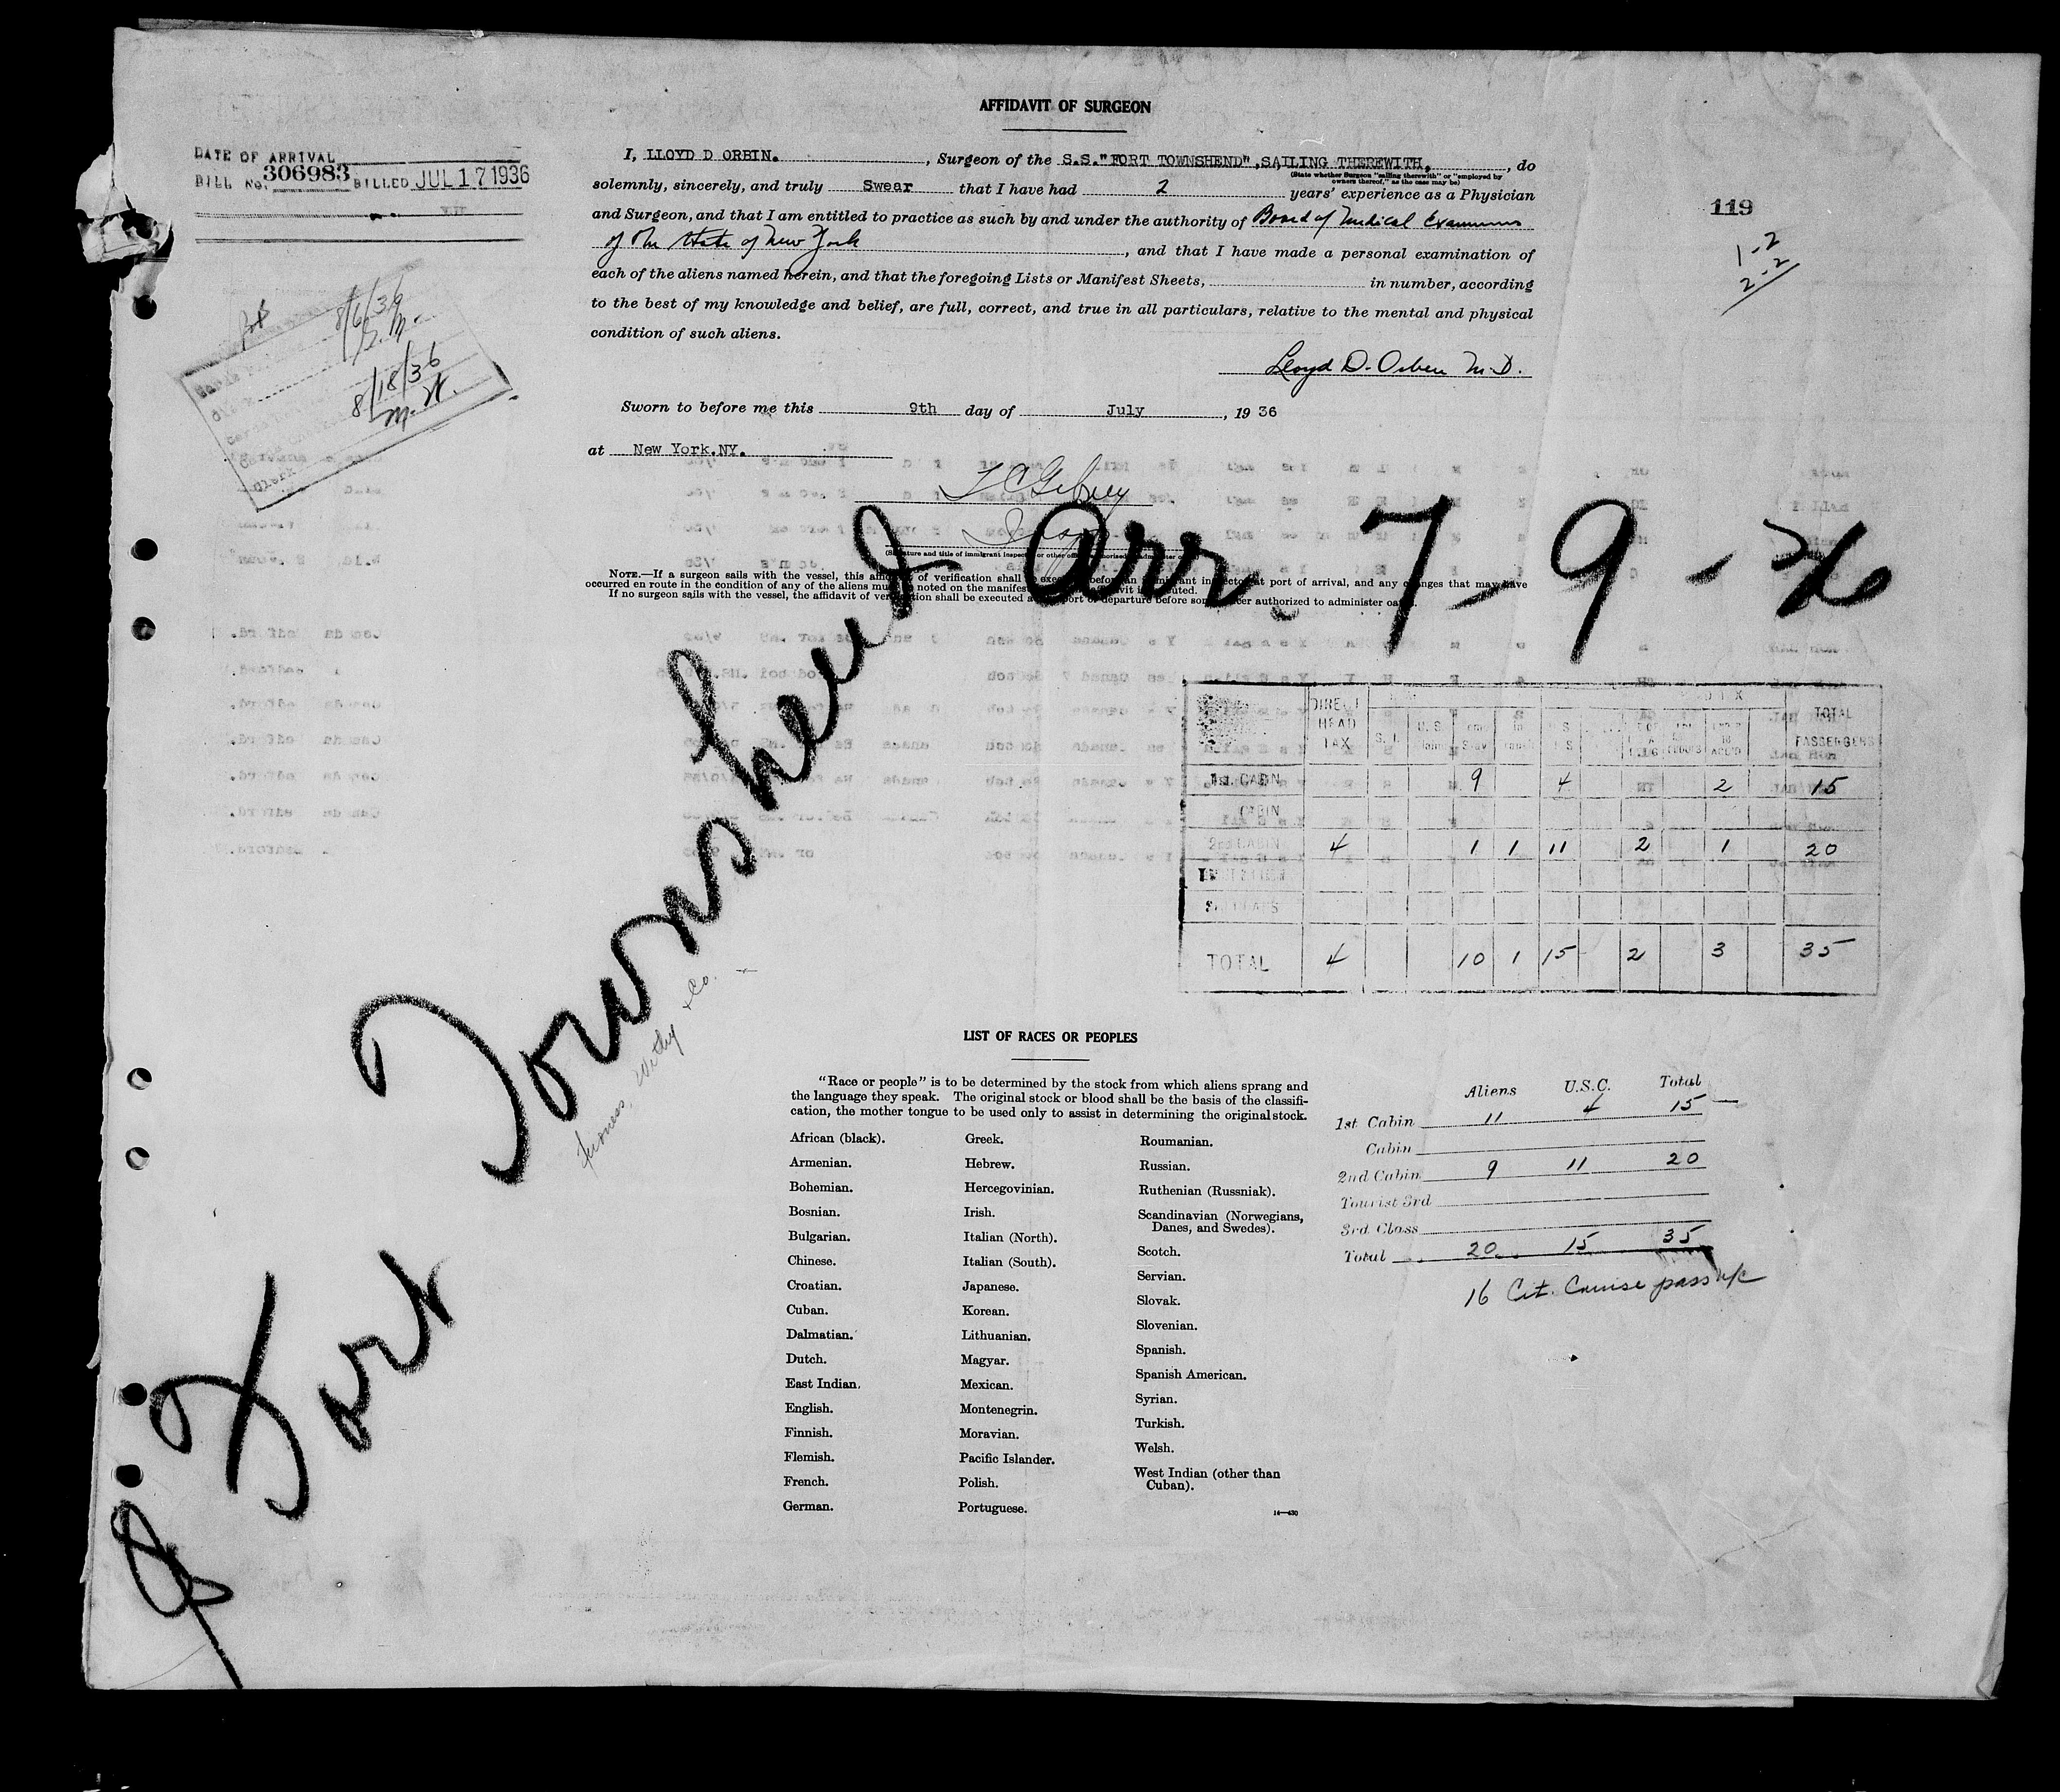 AFFIDAVIT OF SURGEON
DATE OF ARRIVAL
BILL No. 306983 BILLED JUL 17 1936
I, LLOYD D ORBIN. , Surgeon of the S.S."FORT TOWNSHEND",SAILING THEREWITH, , do
(State whether Surgeon "sailing therewith" or "employed by
owners thereof," as the case may be)
solemnly, sincerely, and truly Swear that I have had 2 years' experience as a Physician
and Surgeon, and that I am entitled to practice as such by and under the authority of Board of Medical Examiners
of the State of New York , and that I have made a personal examination of
each of the aliens named herein, and that the foregoing Lists or Manifest Sheets, in number, according
to the best of my knowledge and belief, are full, correct, and true in all particulars, relative to the mental and physical
condition of such aliens.
119
1-2
2-2
8/6/36
8/18/36
M.W.
Clerk
Lloyd D. Orben M.D.
Sworn to before me this 9th day of July , 19 36
at New York.NY.
(Signature and title of immigrant inspector or other officer authorized to administer
NOTE.—If a surgeon sails with the vessel, this affidavit of verification shall be executed before an immigrant inspector at port of arrival, and any changes that may have
occurred en route in the condition of any of the aliens must be noted on the manifest before affidavit is executed.
If no surgeon sails with the vessel, the affidavit of verification shall be executed at port of departure before some officer authorized to administer oaths.
SS Fort Townshend Arr. 7-9-36
Furness, Withy & Co.
DIRECT HEAD TAX
TOTAL PASSENGERS
1st. CABIN 9 4 2 15
CABIN
2nd CABIN 4 1 1 11 2 1 20
TOTAL 4 10 1 15 2 3 35
LIST OF RACES OR PEOPLES
"Race or people" is to be determined by the stock from which aliens sprang and
the language they speak. The original stock or blood shall be the basis of the classifi-
cation, the mother tongue to be used only to assist in determining the original stock.
African (black).
Armenian.
Bohemian.
Bosnian.
Bulgarian.
Chinese.
Croatian.
Cuban.
Dalmatian.
Dutch.
East Indian.
English.
Finnish.
Flemish.
French.
German.
Greek.
Hebrew.
Hercegovinian.
Irish.
Italian (North).
Italian (South).
Japanese.
Korean.
Lithuanian.
Magyar.
Mexican.
Montenegrin.
Moravian.
Pacific Islander.
Polish.
Portuguese.
Roumanian.
Russian.
Ruthenian (Russniak).
Scandinavian (Norwegians,
Danes, and Swedes).
Scotch.
Servian.
Slovak.
Slovenian.
Spanish.
Spanish American.
Syrian.
Turkish.
Welsh.
West Indian (other than
Cuban).
14—430
Aliens U.S.C. Total
1st Cabin 11 4 15
Cabin
2nd Cabin 9 11 20
Tourist 3rd
3rd Class
Total 20 15 35
16 Cit. Cruise pass